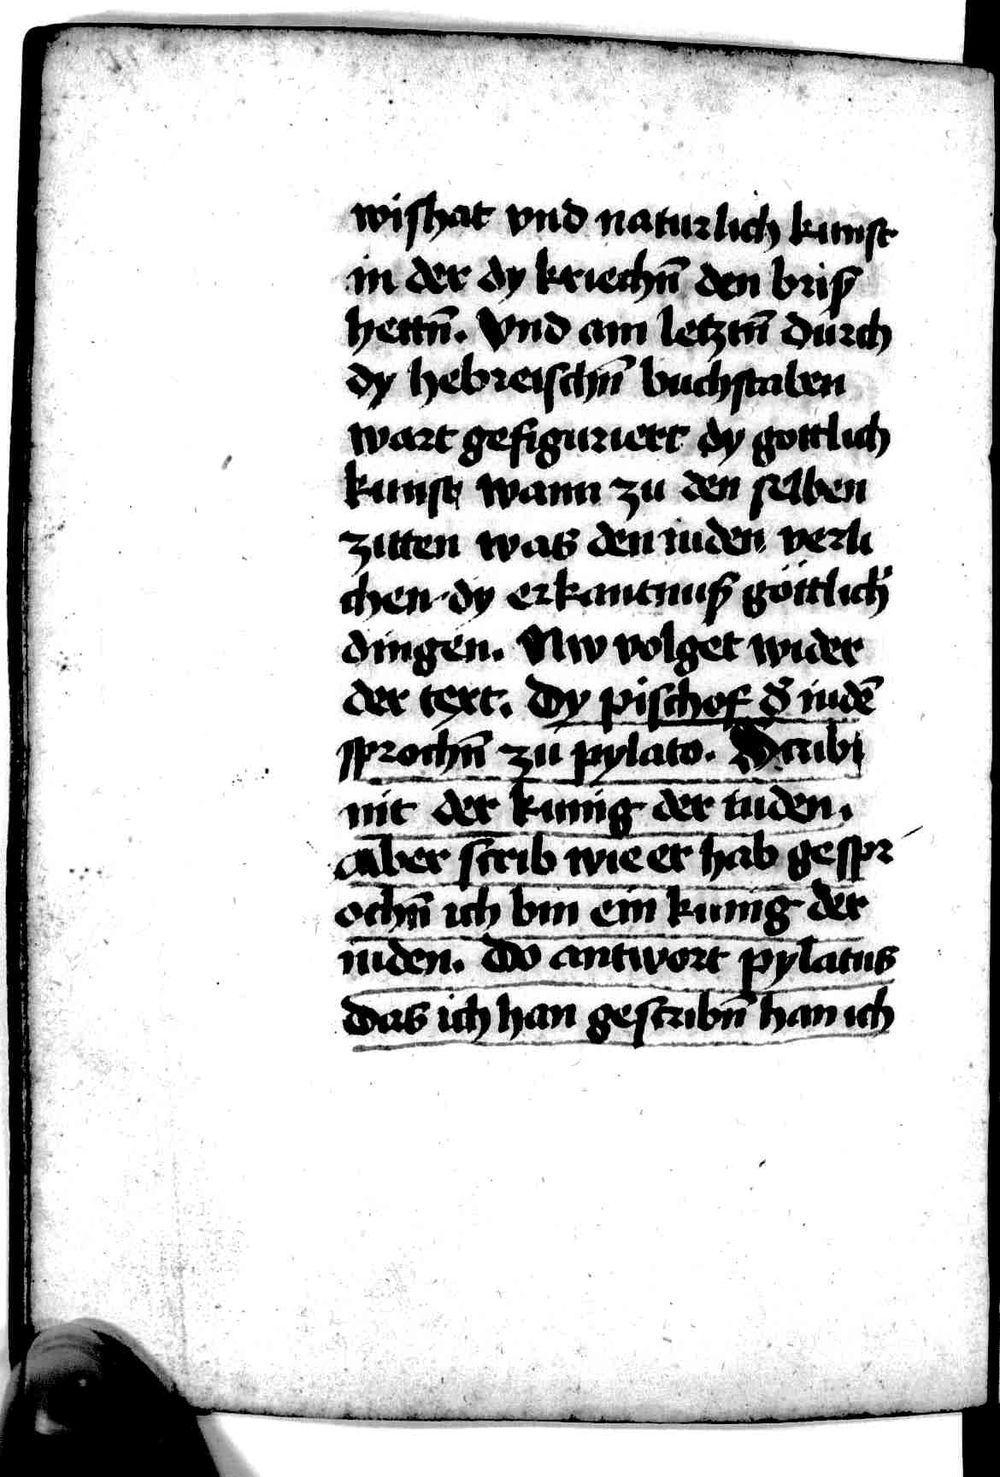 wishat vnd naturlich kunst
in der dy kriechn̄ den briß
hettn̄. Vnd am letztn̄ durch
dy hebreischn̄ buchstaben
wart gefiguriert dy gottlich
kunst wann zu den selben
zitten was den iuden verli
chen dy erkantnuß göttlich̄
dingen. Nw volget wider
der text. Dy pischof d̄ iudē
sprochn̄ zu pylato. Scribi
nit der kunig der iuden.
Aber scrib wie er hab gespr
ochn̄ ich bin ein kunig der
iuden. Do antwort pylatus
Das ich han gescribn̄ han ich